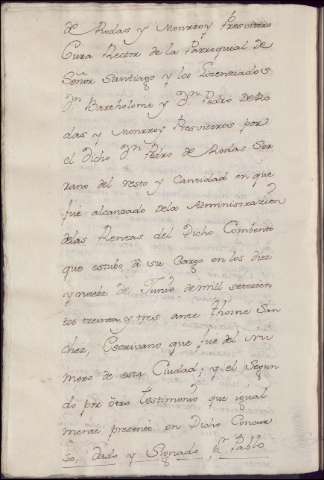 de Rodas y Monrroy Presvitero
Cura Rector de la Parrequial de
Señor Santiago y los Lizenziados
Dn Bartholome y Dn Pedro de Ro
das y Monrroy Presviteros por
el Dicho Dn Pedro de Rodas Ser
rano del resto y Cantidad en que
fue alcanzado dela Administrazion
delas Rentas del Dicho Combento
que estubo à su Cargo en los diez
y nuebe de Junio de mil setecien
tos treinta y tres ante Thome San
chez, Escrivano que fue del Nu
mero de esta Ciudad; y el Segun
do por ôtro testimonio que igual
mente presentè en Dicho Concur
so, dado y Signado, pr Pablo